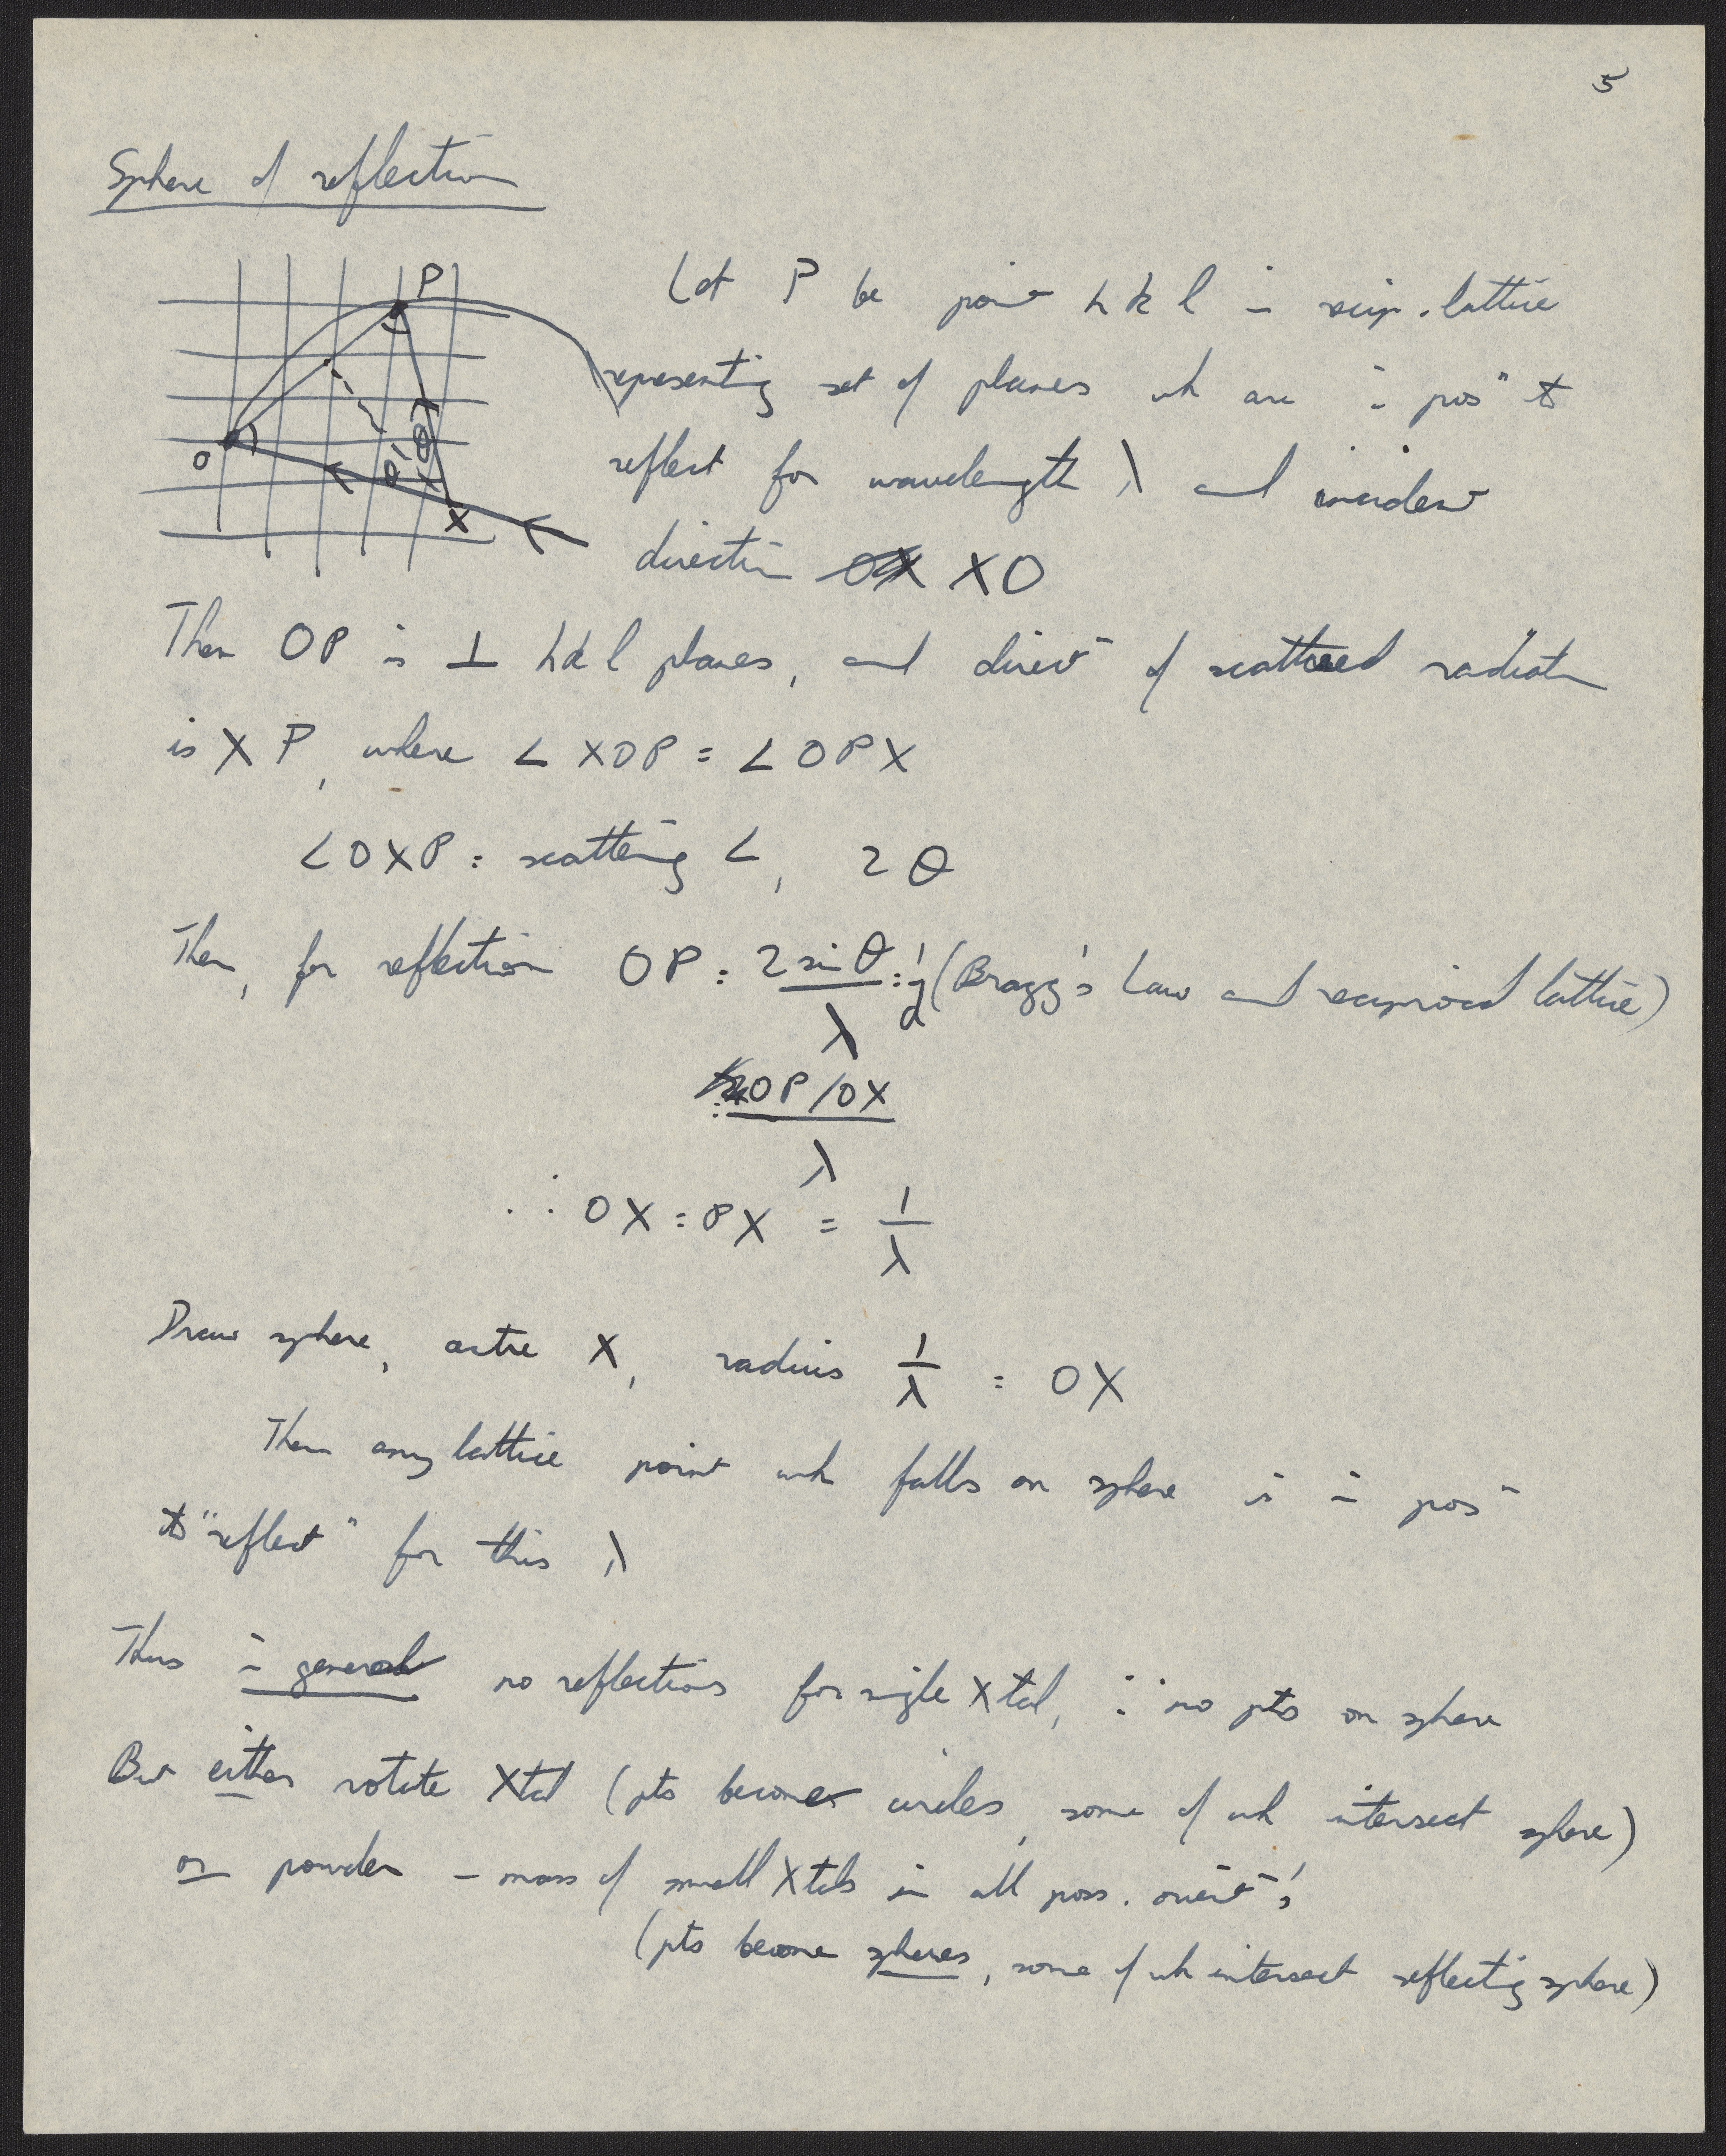 5
Sphere of reflection
P
O
θ
θ
X
Let P be point h k l in recip. lattice
representing set of planes wh are in posⁿ to
reflect for wavelength λ and incident
direction OX XO
Then OP is ⊥ hkl planes, and directⁿ of scattered radiatn
is XP, where ∠ XOP = ∠ OPX
∠OXP = scattering ∠, 2θ
Then, for reflection OP = 2 sin θ / λ = 1/d (Bragg's Law and reciprocal lattice)
= OP/OX / λ
∴ OX = PX = 1/λ
Draw sphere, centre X, radius 1/λ = OX
Then any lattice point wh falls on sphere is in posⁿ
to "reflect" for this λ
Thus in general no reflections for single Xtal, ∵ no pts on sphere
But either rotate Xtal (pts become circles, some of wh intersect sphere)
or powder – mass of small Xtals in all poss. orientⁿs
(pts become spheres, some of wh intersect reflecting sphere)